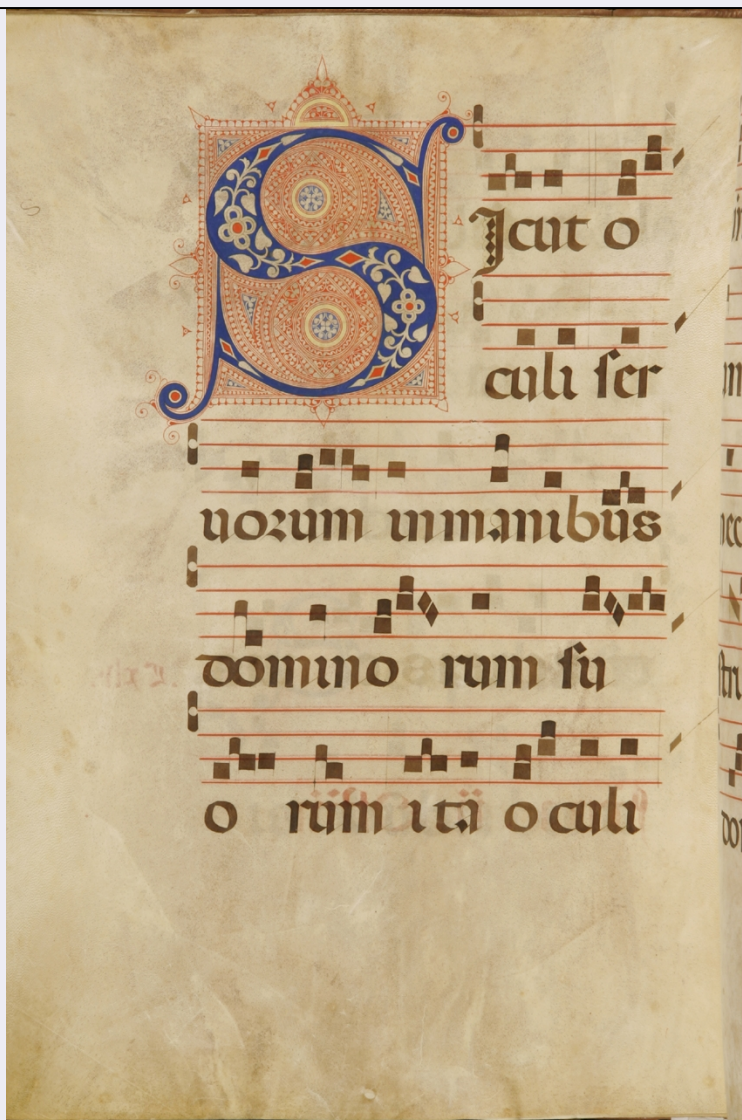 SIcut o
culi ser
uorum inmanibus
domino rum su
o rum ita oculi